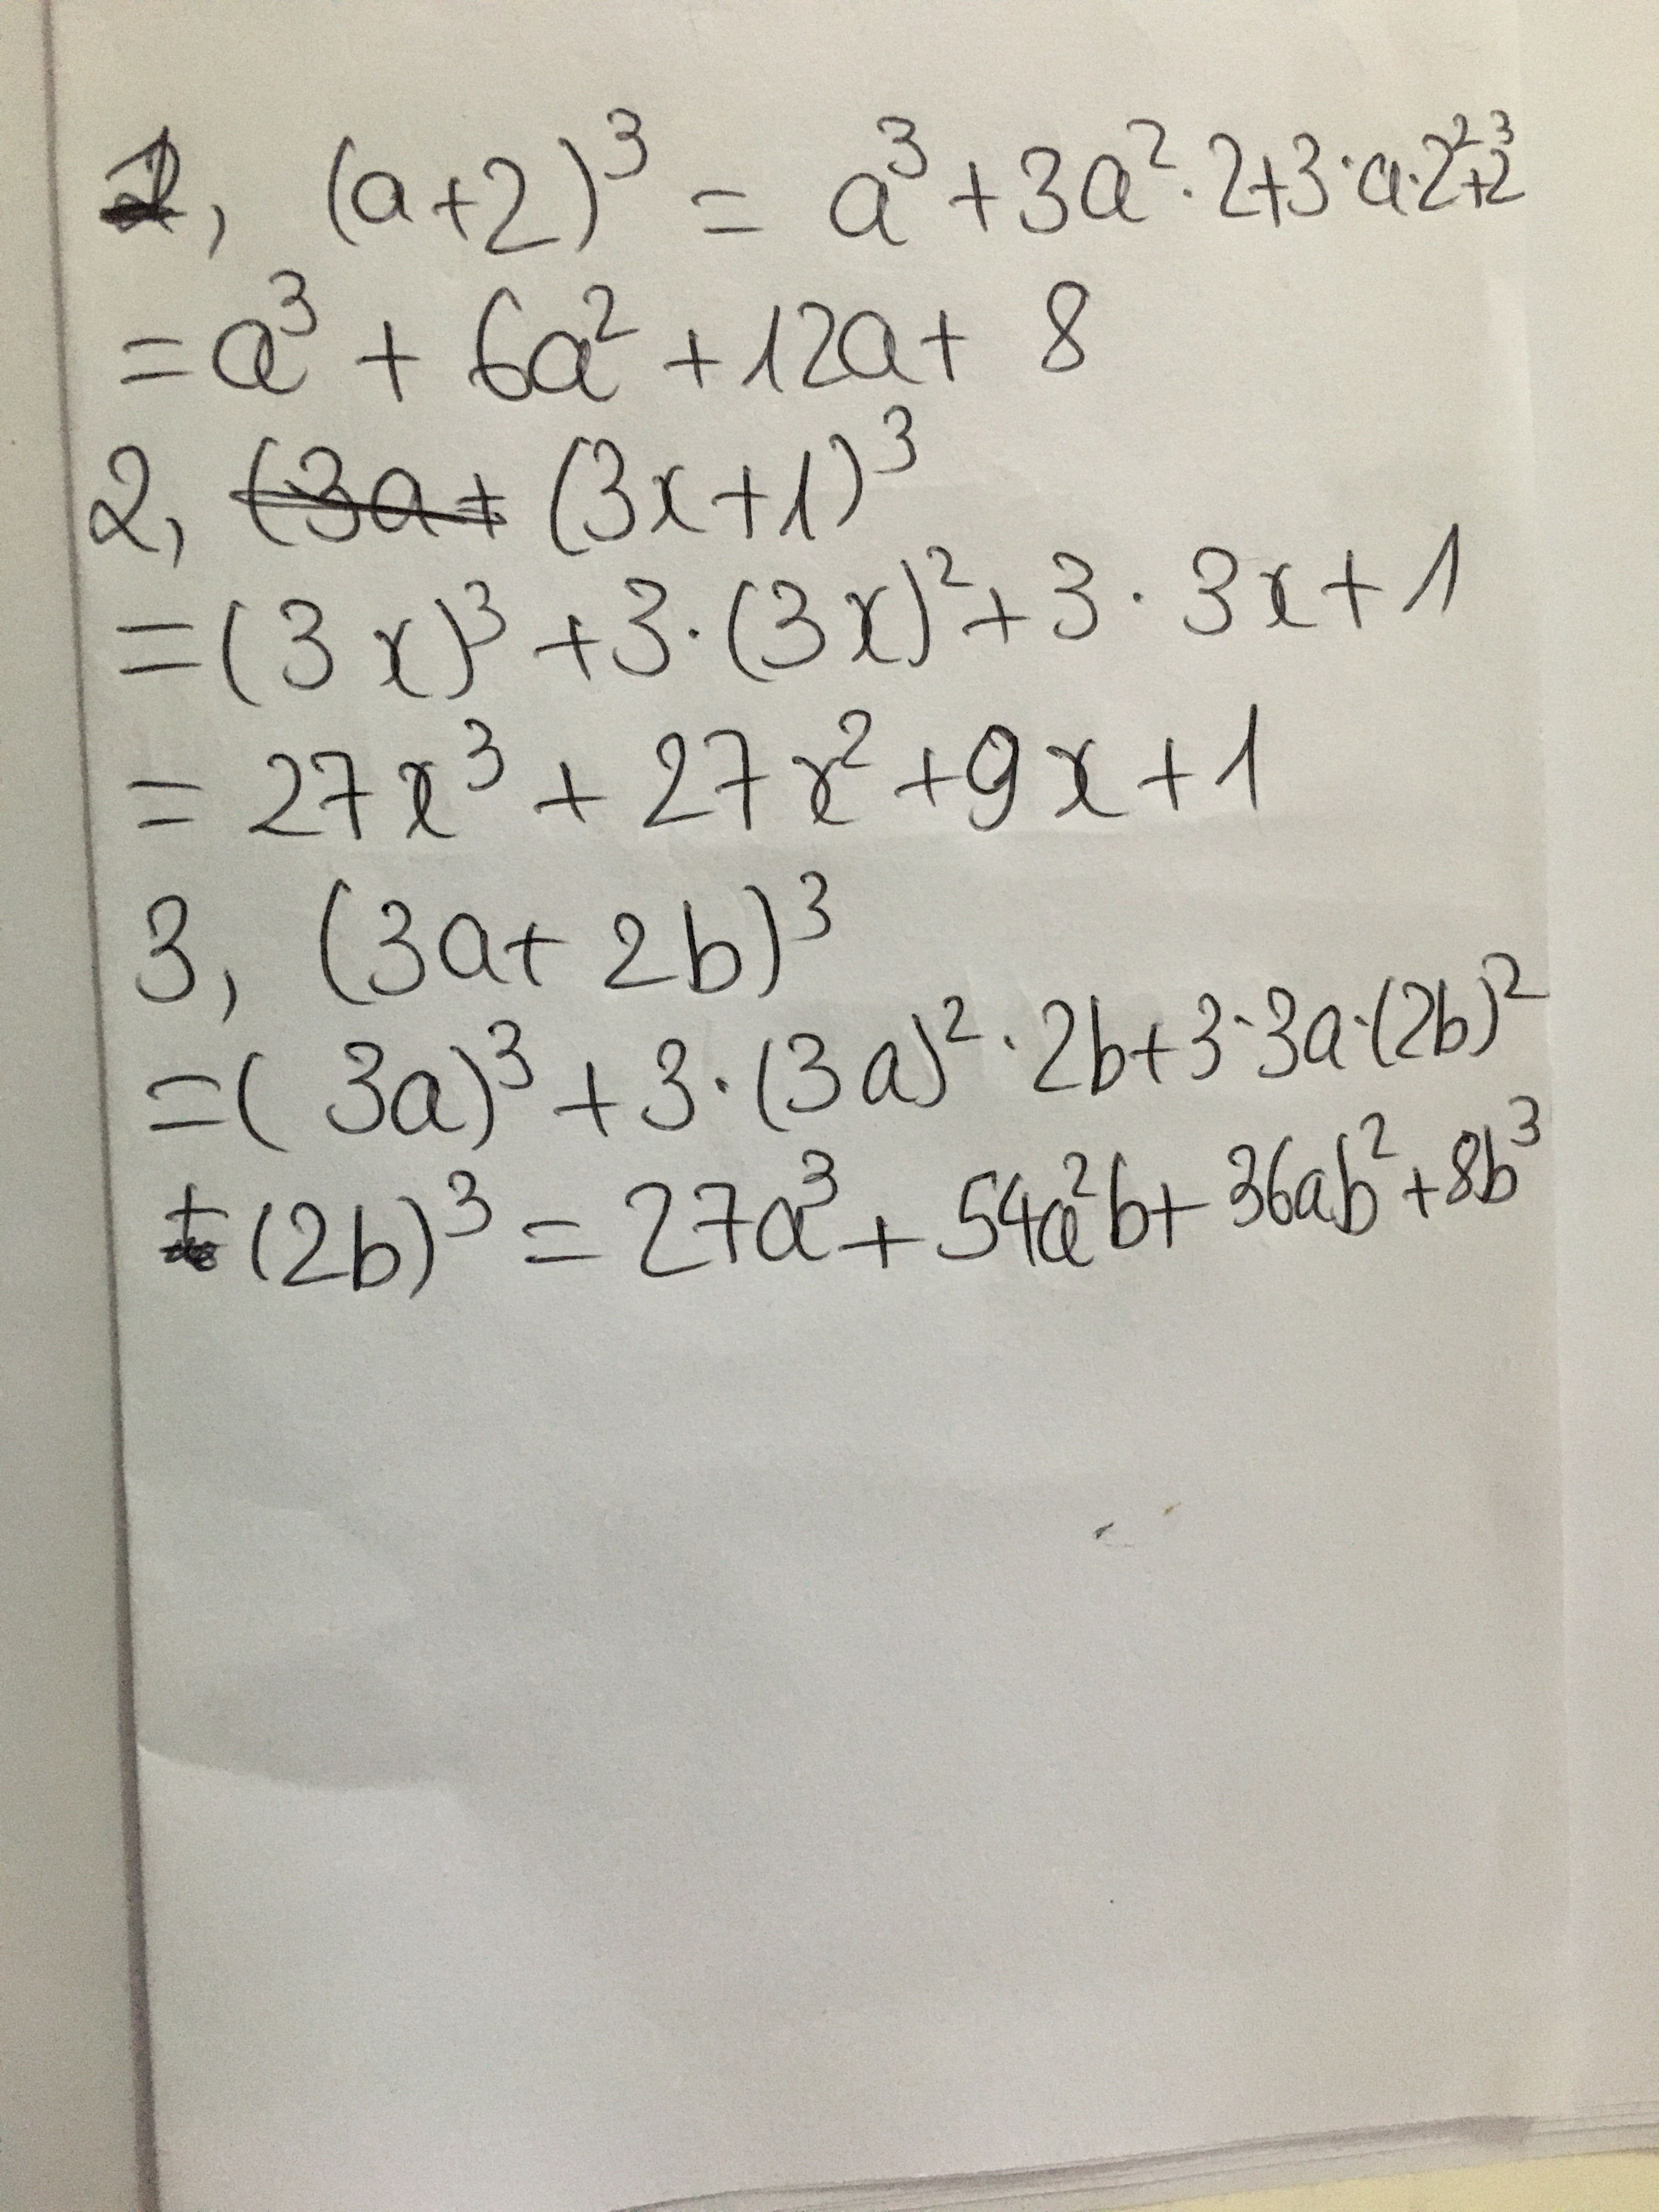 1, (a+2)³ = a³+3a²·2+3·a·2²+2³
=a³ + 6a² +12a+ 8
2, (3a+ (3x+1)³
=(3x)³+3·(3x)²+3·3x+1
= 27x³ + 27x² +9x+1
3, (3a+2b)³
=(3a)³+3·(3a)²·2b+3·3a·(2b)²
+(2b)³=27a³+54a²b+36ab²+8b³